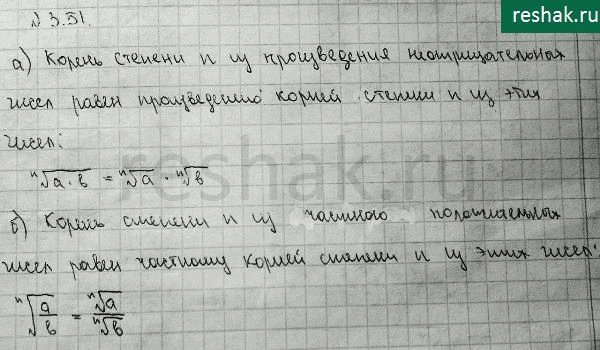 reshak.ru
№ 3.51.
а) Корень степени n из произведения неотрицательных
чисел равен произведению корней степени n из этих
чисел:
ⁿ√(a·b) = ⁿ√a · ⁿ√b
reshak.ru
б) Корень степени n из частного положительных
чисел равен частному корней степени n из этих чисел:
ⁿ√(a/b) = ⁿ√a / ⁿ√b